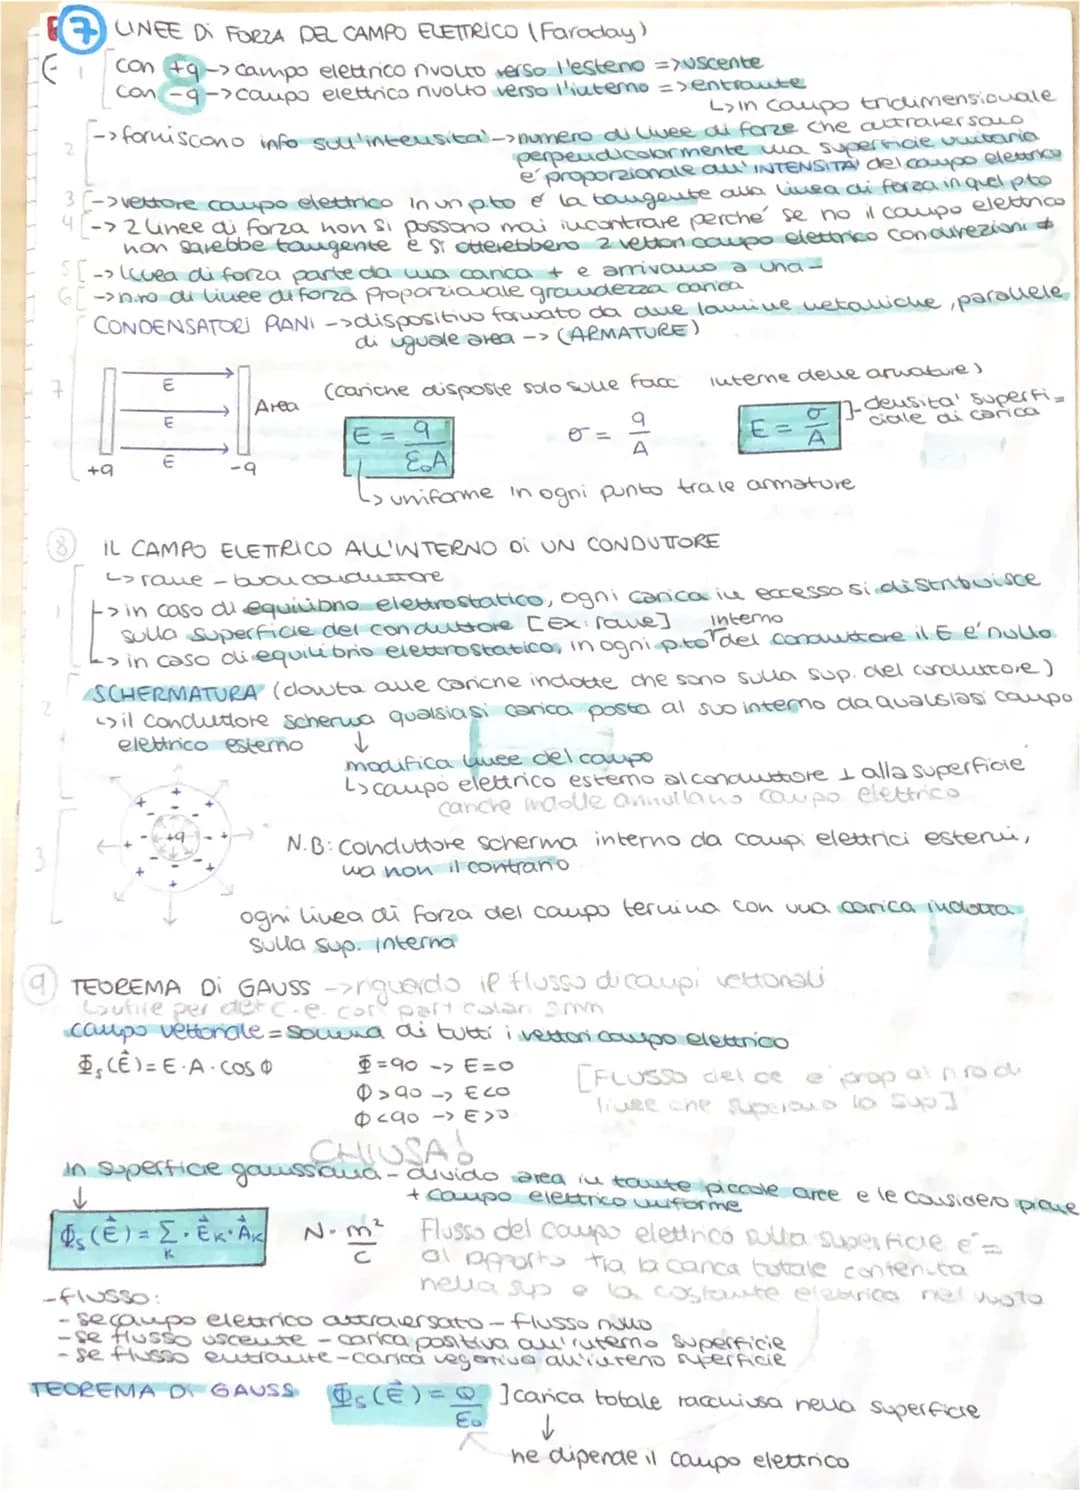 7 LINEE Di FORZA DEL CAMPO ELETTRICO (Faraday)
1 con +q -> campo elettrico rivolto verso l'esterno => uscente
con -q -> campo elettrico rivolto verso l'interno => entrante
↳ in campo tridimensionale
2 -> forniscono info sull'intensita' -> numero di linee di forze che attraversano
perpendicolarmente una superficie unitaria
e' proporzionale all'INTENSITA' del campo elettrico
3 -> vettore campo elettrico in un pto e' la tangente alla linea di forza in quel pto
4 -> 2 linee di forza non si possono mai incontrare perche' se no il campo elettrico
non sarebbe tangente e si otterebbero 2 vettori campo elettrico con direzioni ≠
5 -> linea di forza parte da una carica + e arrivano a una -
6 -> n.ro di linee di forza proporzionale grandezza carica
CONDENSATORI PIANI -> dispositivo formato da due lamine metalliche, parallele,
di uguale area -> (ARMATURE)
7 (cariche disposte solo sulle facc interne delle armature)
E E E Area +q -q
E = q / ε₀A σ = q / A E = σ / A ]- densita' superfi=
ciale di carica
↳ uniforme in ogni punto tra le armature
8 IL CAMPO ELETTRICO ALL'INTERNO Di UN CONDUTTORE
↳ rame - buon conduttore
1 -> in caso di equilibrio elettrostatico, ogni carica in eccesso si distribuisce
sulla superficie del conduttore [Ex: rame]
-> in caso di equilibrio elettrostatico, in ogni p.to interno del conduttore il E e' nullo
2 SCHERMATURA (dovuta alle cariche indotte che sono sulla sup. del conduttore)
↳ il conduttore scherma qualsiasi carica posta al suo interno da qualsiasi campo
elettrico esterno ↓
modifica linee del campo
↳ campo elettrico esterno al conduttore ⊥ alla superficie
cariche indotte annullano campo elettrico
3 +q
N.B: conduttore scherma interno da campi elettrici esterni,
ma non il contrario
ogni linea di forza del campo termina con una carica indotta
sulla sup. interna
9 TEOREMA Di GAUSS -> riguardo il flusso di campi vettoriali
↳ utile per det c.e. con part colari simm
campo vettoriale = somma di tutti i vettori campo elettrico
Φₛ(E⃗) = E · A · cos Φ Φ = 90 -> E = 0
Φ > 90 -> E < 0
Φ < 90 -> E > 0
[FLUSSO del ce e' prop al n.ro di
linee che superano la sup]
CHIUSA!
in superficie gaussiana - divido area in tante piccole aree e le considero piane
↓ + campo elettrico uniforme
Φₛ(E⃗) = Σ · E⃗ₖ · A⃗ₖ
K
N · m² / C
Flusso del campo elettrico sulla superficie e' =
al rapporto tra la carica totale contenuta
nella sup e la costante elettrica nel vuoto
- flusso:
- se campo elettrico attraversato - flusso nullo
- se flusso uscente - carica positiva all'interno superficie
- se flusso entrante - carica negativa all'interno superficie
TEOREMA Di GAUSS Φₛ(E⃗) = Q / ε₀ ] carica totale racchiusa nella superficie
↓
ne dipende il campo elettrico